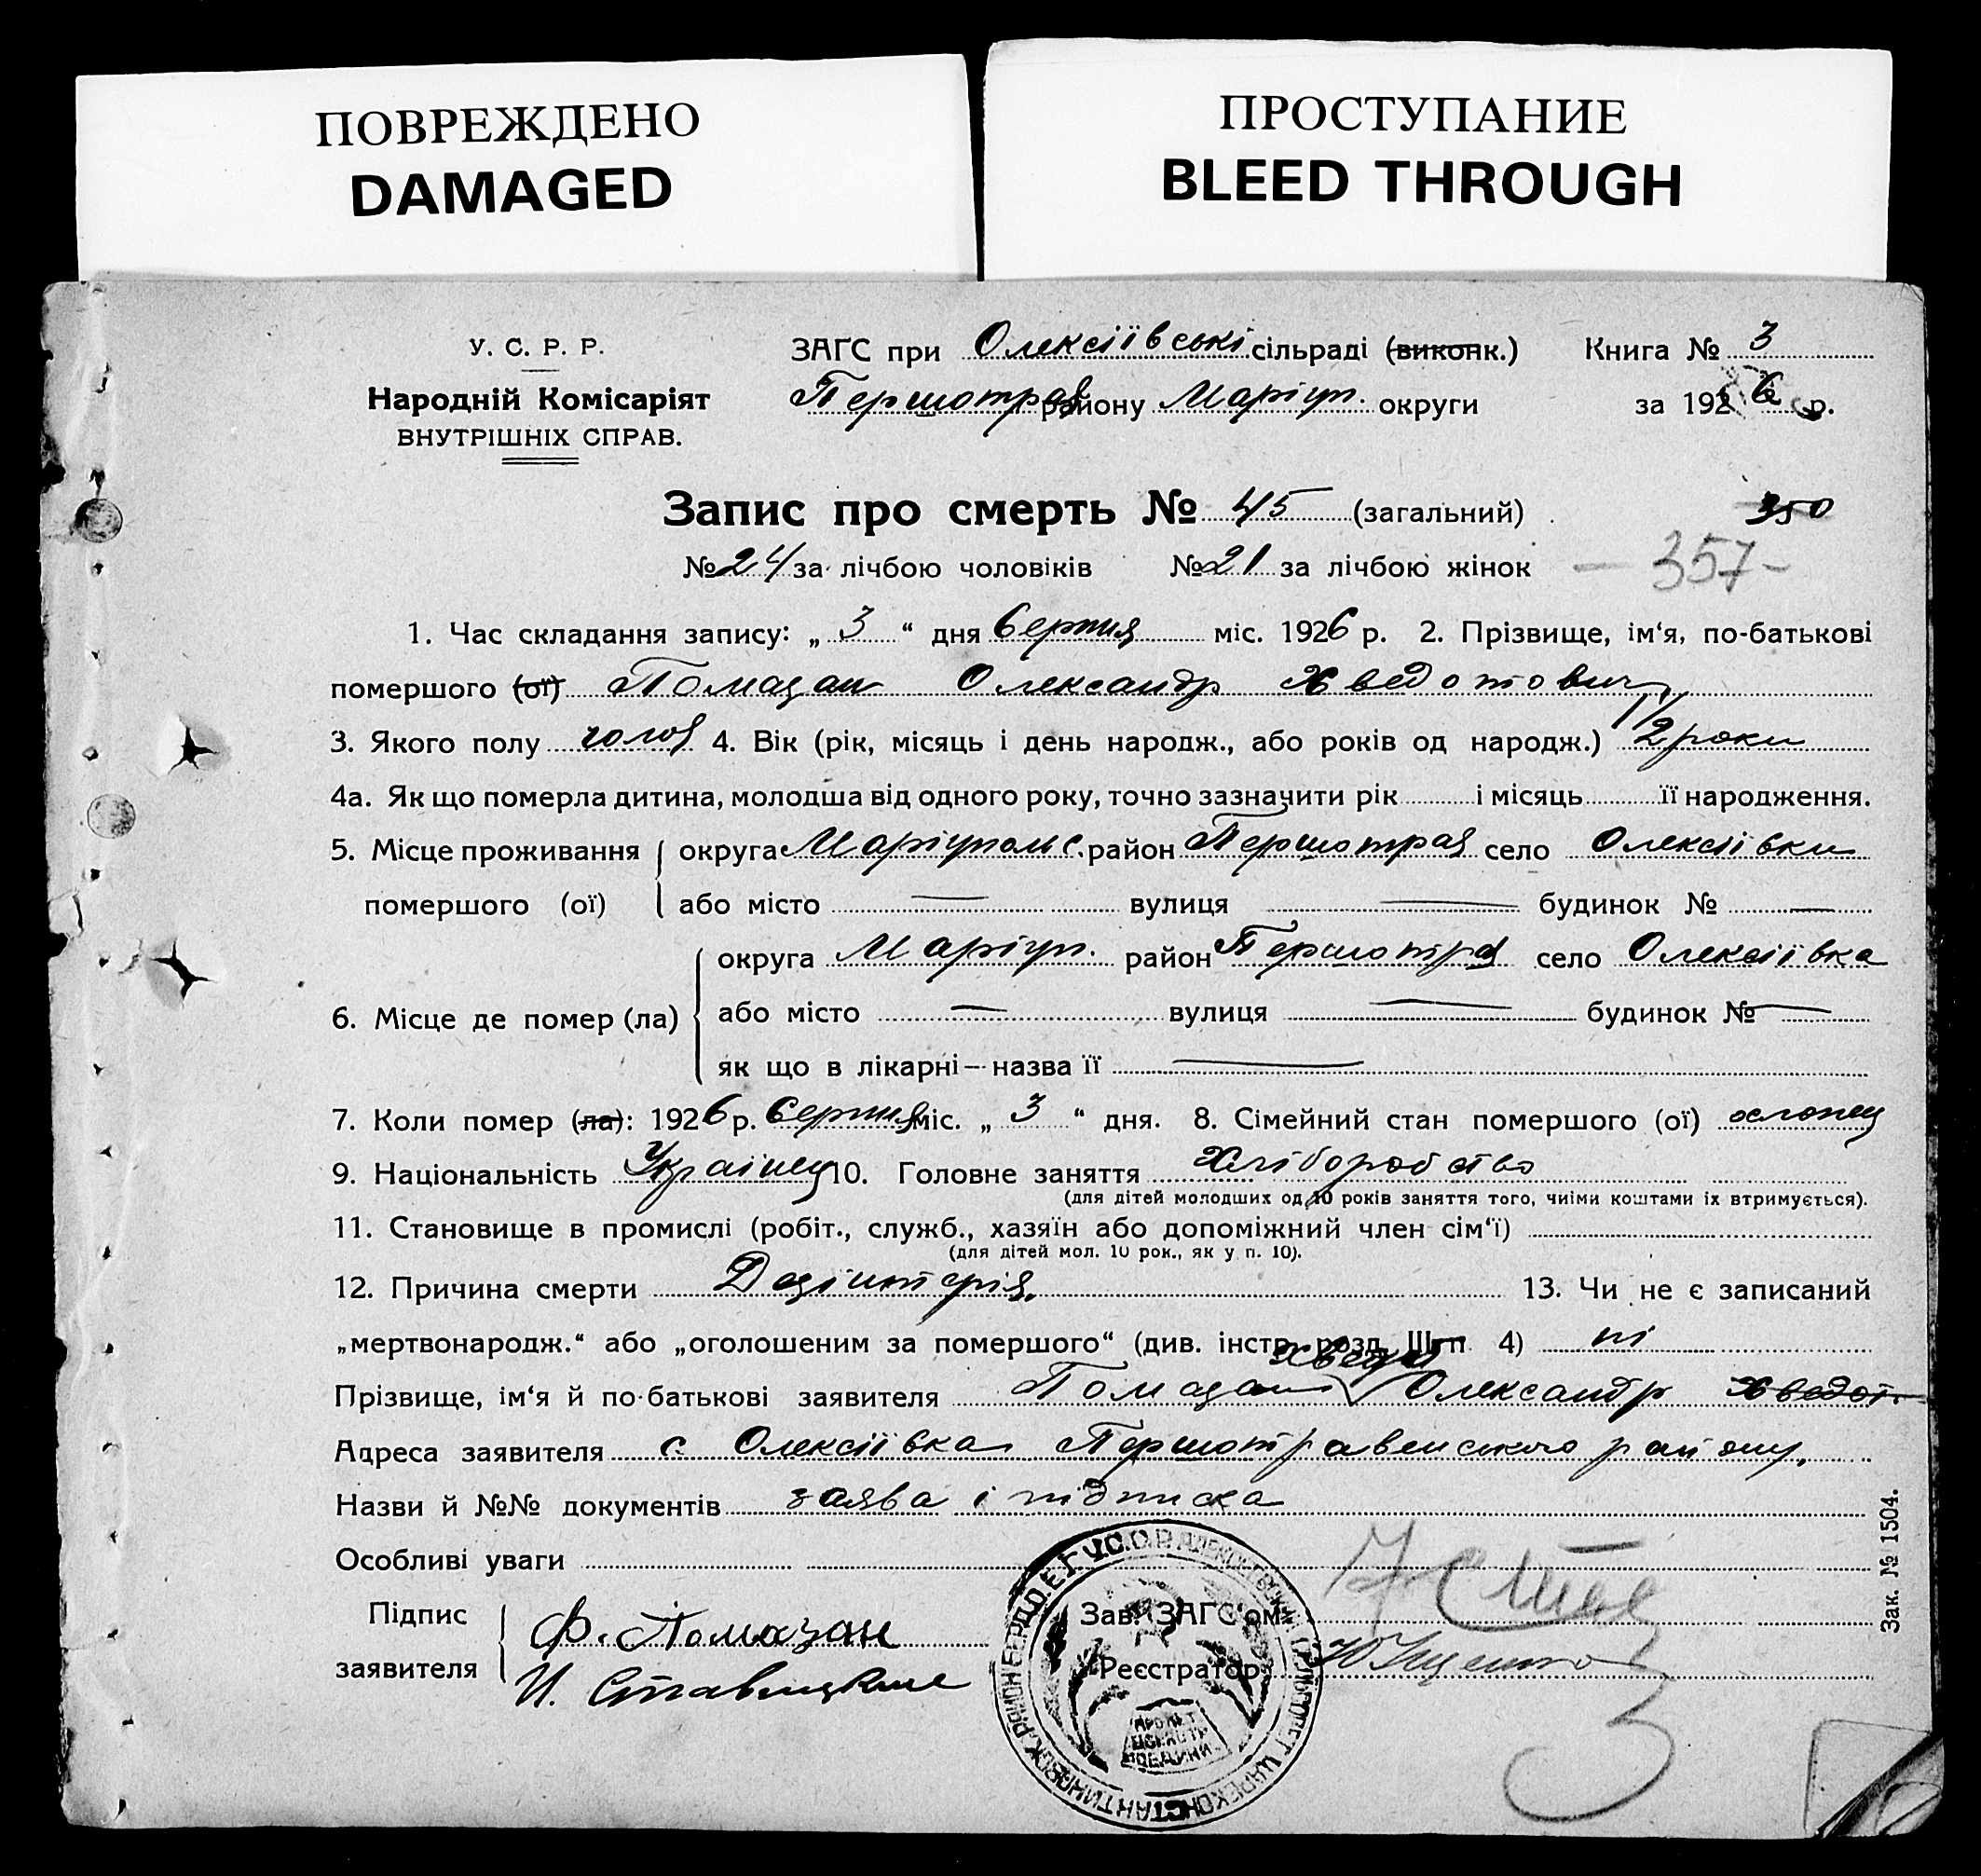 ПОВРЕЖДЕНО
DAMAGED
ПРОСТУПАНИЕ
BLEED THROUGH
У. С. Р. Р.
Народній Комісаріят
ВНУТРІШНІХ СПРАВ.
ЗАГС при Олексіївські сільраді (виконк.) Книга № 3
Першотрав району Маріуп. округи за 1926 р.
Запис про смерть № 45 (загальний) 350
№ 24 за лічбою чоловіків № 21 за лічбою жінок – 357 –
1. Час складання запису: „ 3 “ дня Серпня міс. 1926 р. 2. Прізвище, ім‘я, по-батькові
помершого (ої) Помазан Олександр Хведотович
3. Якого полу чолов 4. Вік (рік, місяць і день народж., або років од народж.) 1/2 роки
4а. Як що померла дитина, молодша від одного року, точно зазначити рік і місяць її народження.
5. Місце проживання помершого (ої) округа Маріупольс. район Першотрав село Олексіївки
або місто — вулиця — будинок № —
6. Місце де помер (ла) округа Маріуп. район Першотрав село Олексіївка
або місто — вулиця — будинок № —
як що в лікарні — назва її —
7. Коли помер (ла): 1926 р. Серпня міс. „ 3 “ дня. 8. Сімейний стан помершого (ої) хлопець
9. Національність Українец 10. Головне заняття Хліборобство
(для дітей молодших од 10 років заняття того, чиїми коштами їх втримується).
11. Становище в промислі (робіт., служб., хазяїн або допоміжний член сім‘ї)
(для дітей мол. 10 рок., як у п. 10).
12. Причина смерти Дезінтерія. 13. Чи не є записаний
„мертвонародж.“ або „оголошеним за помершого“ (див. інстр. розд. III п 4) ні
Хведот
Прізвище, ім‘я й по-батькові заявителя Помазан Олександр Хведот.
Адреса заявителя с. Олексіївка Першотравенського району.
Назви й №№ документів заява і підписка
Особливі уваги
Підпис заявителя Ф. Помазан
И. Ставицкий
Зав. ЗАГС‘ом
Реєстратор
Зак. № 1504.
3